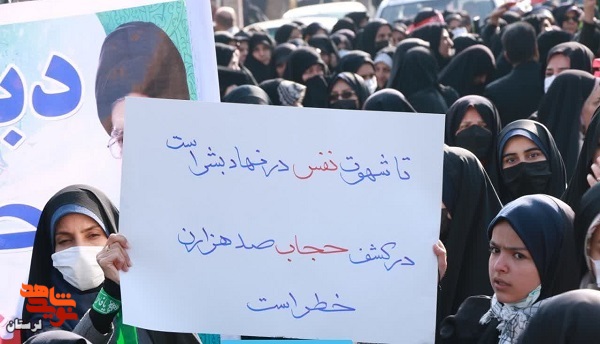 تا شهوت نفس در نهاد بشر است
در کشف حجاب صد هزارن
خطر است
نوید شاهد
لرستان